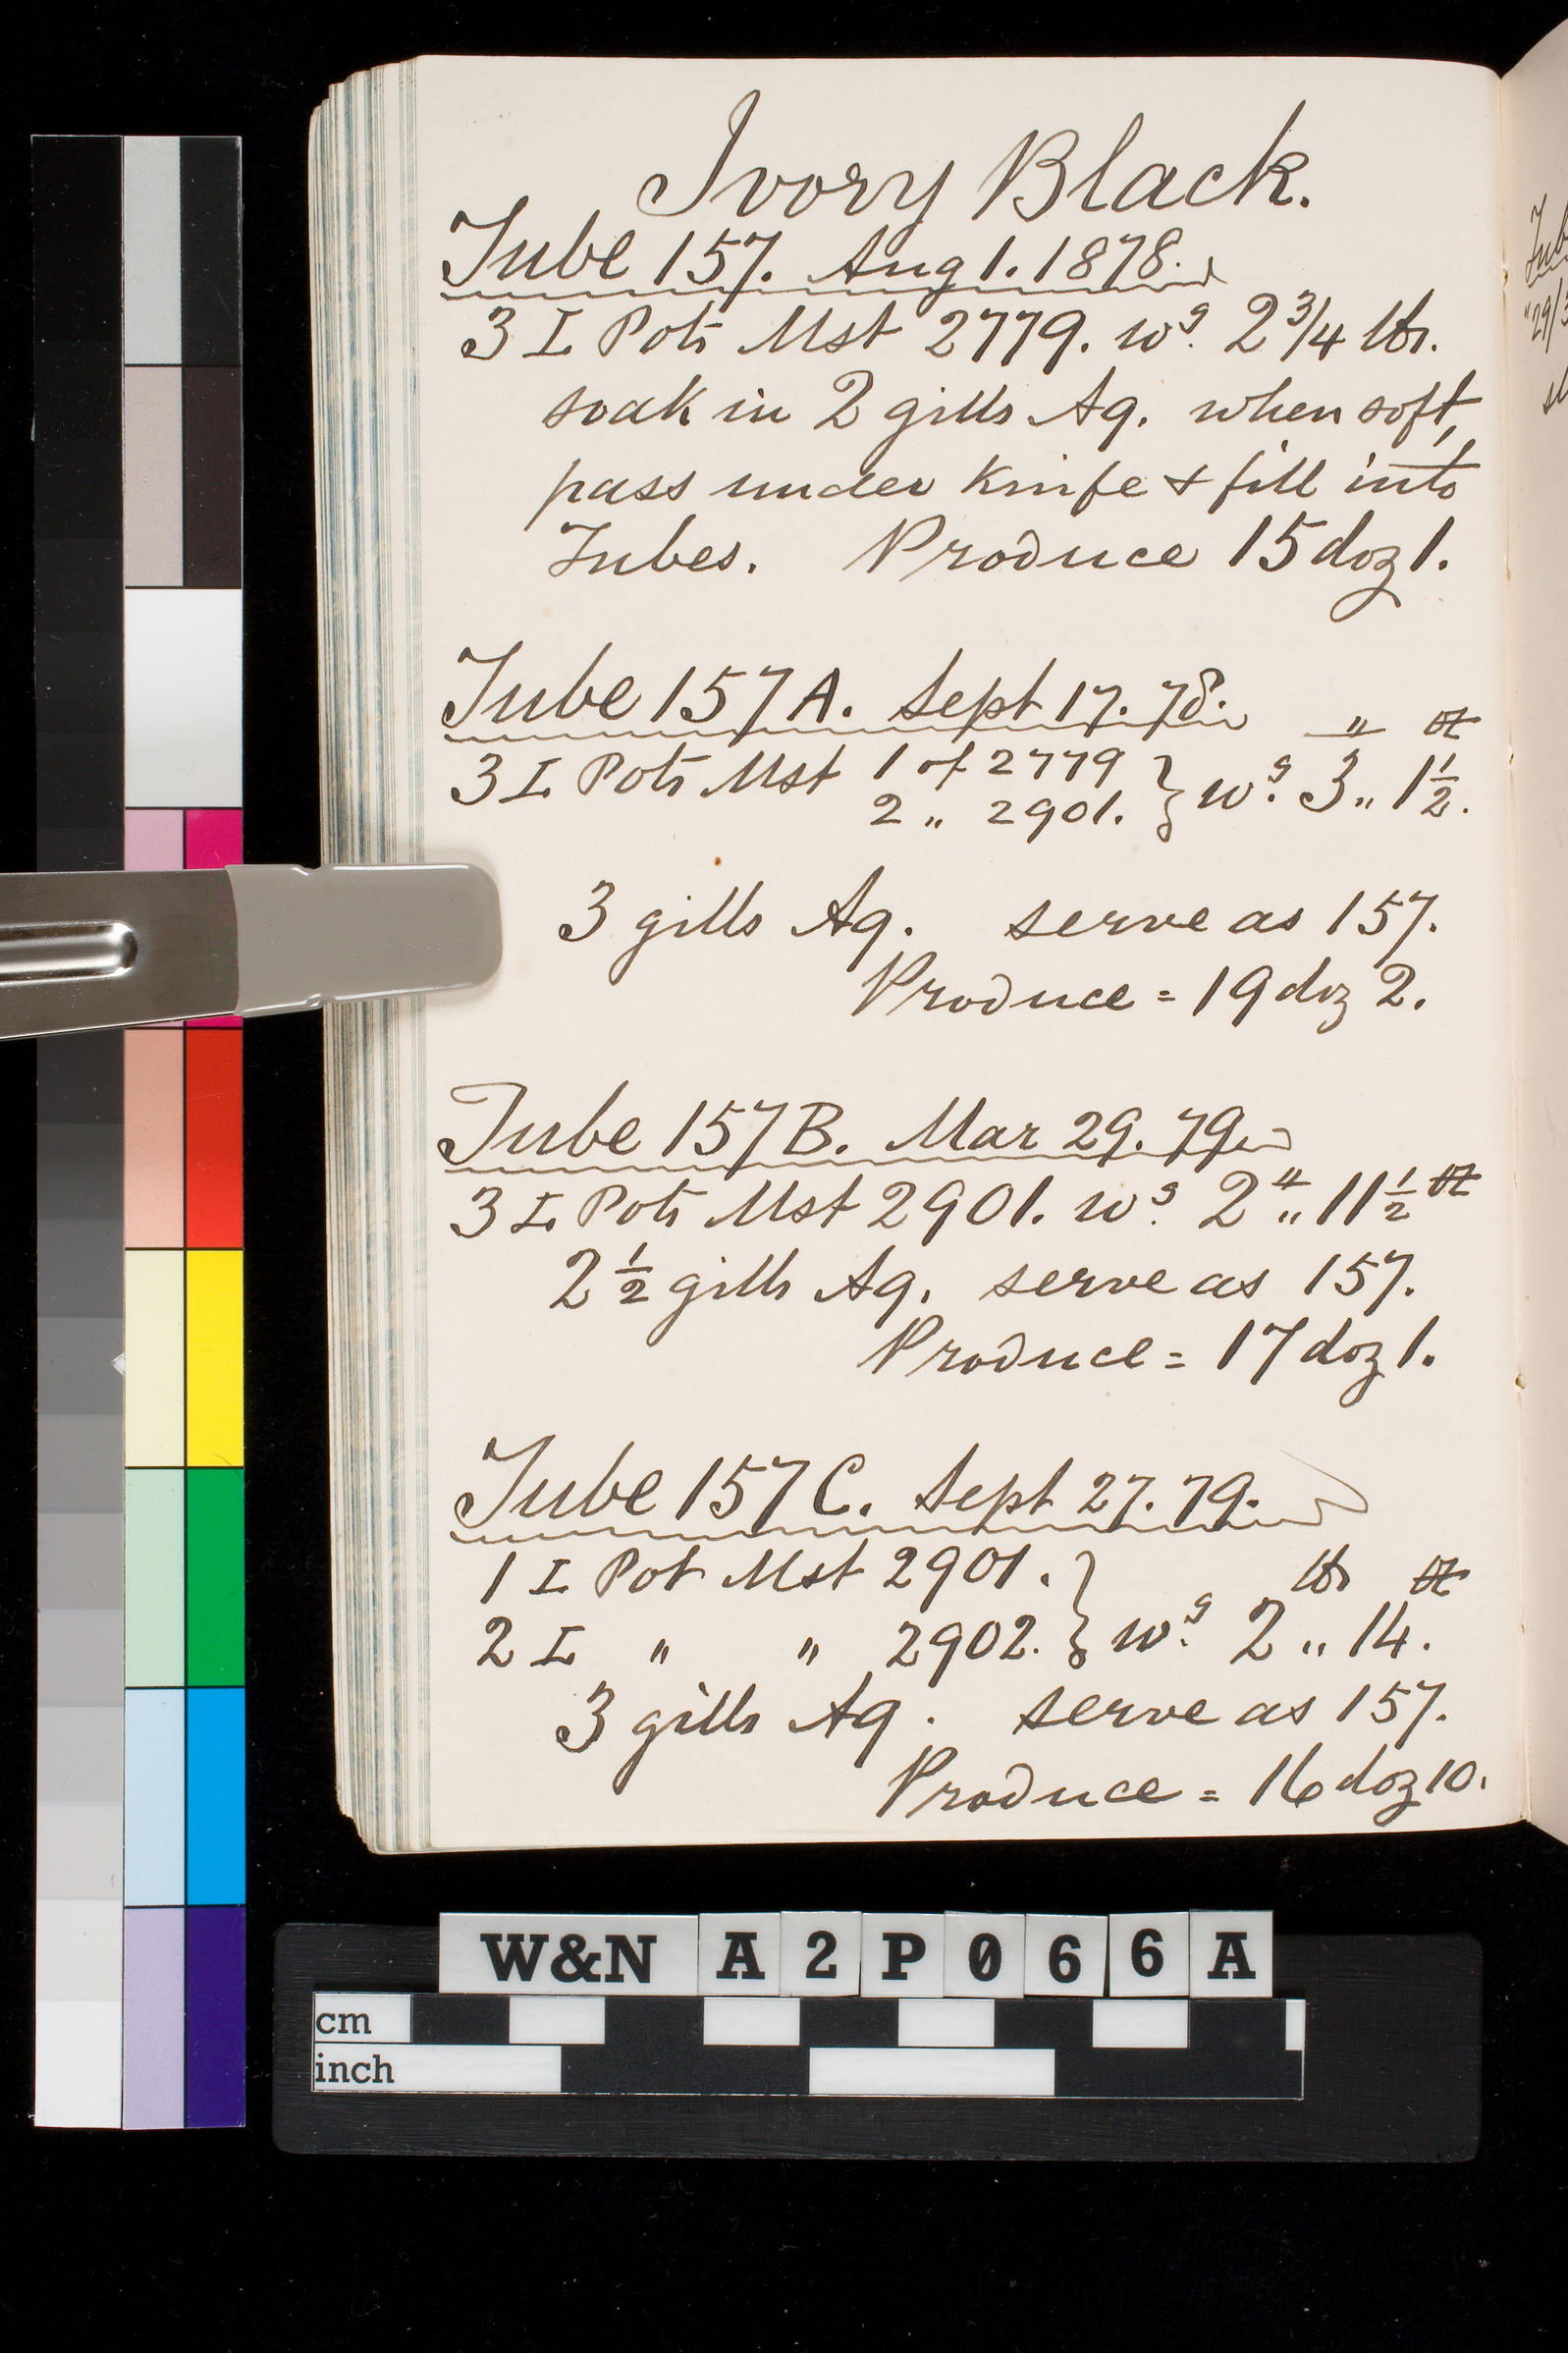 Ivory Black.
Tube 157. Aug 1. 1878.
3 I Pots Mst 2779. wg. 2 3/4 lbs.
soak in 2 gills Aq. when soft,
pass under knife & fill into
Tubes. Produce 15 doz 1.
Tube 157A. Sept 17. 78.
" oz
3 I Pots Mst 1 of 2779 } wg. 3 ,, 1 1/2.
2 ,, 2901.
3 gills Aq. serve as 157.
Produce = 19 doz 2.
Tube 157B. Mar 29. 79
3 I Pots Mst 2901. wg. 2 " ,, 11 1/2 oz
2 1/2 gills Aq. serve as 157.
Produce = 17 doz 1.
Tube 157C. Sept 27. 79.
1 I Pot Mst 2901. } lbs oz
2 I " " 2902. wg. 2 ,, 14.
3 gills Aq. serve as 157.
Produce = 16 doz 10.
W&N A2P066A
cm
inch